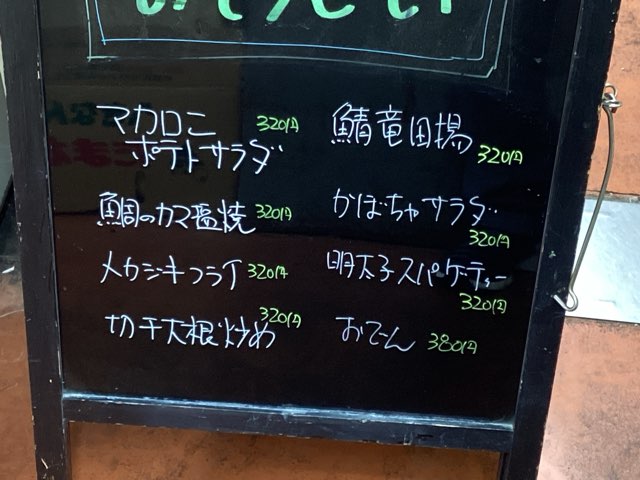 マカロニ 320円
ポテトサラダ
鯛のカマ塩焼 320円
メカジキフライ 320円
切干大根炒め 320円
鯖竜田揚 320円
かぼちゃサラダ 320円
明太子スパゲーティー 320円
おでん 380円